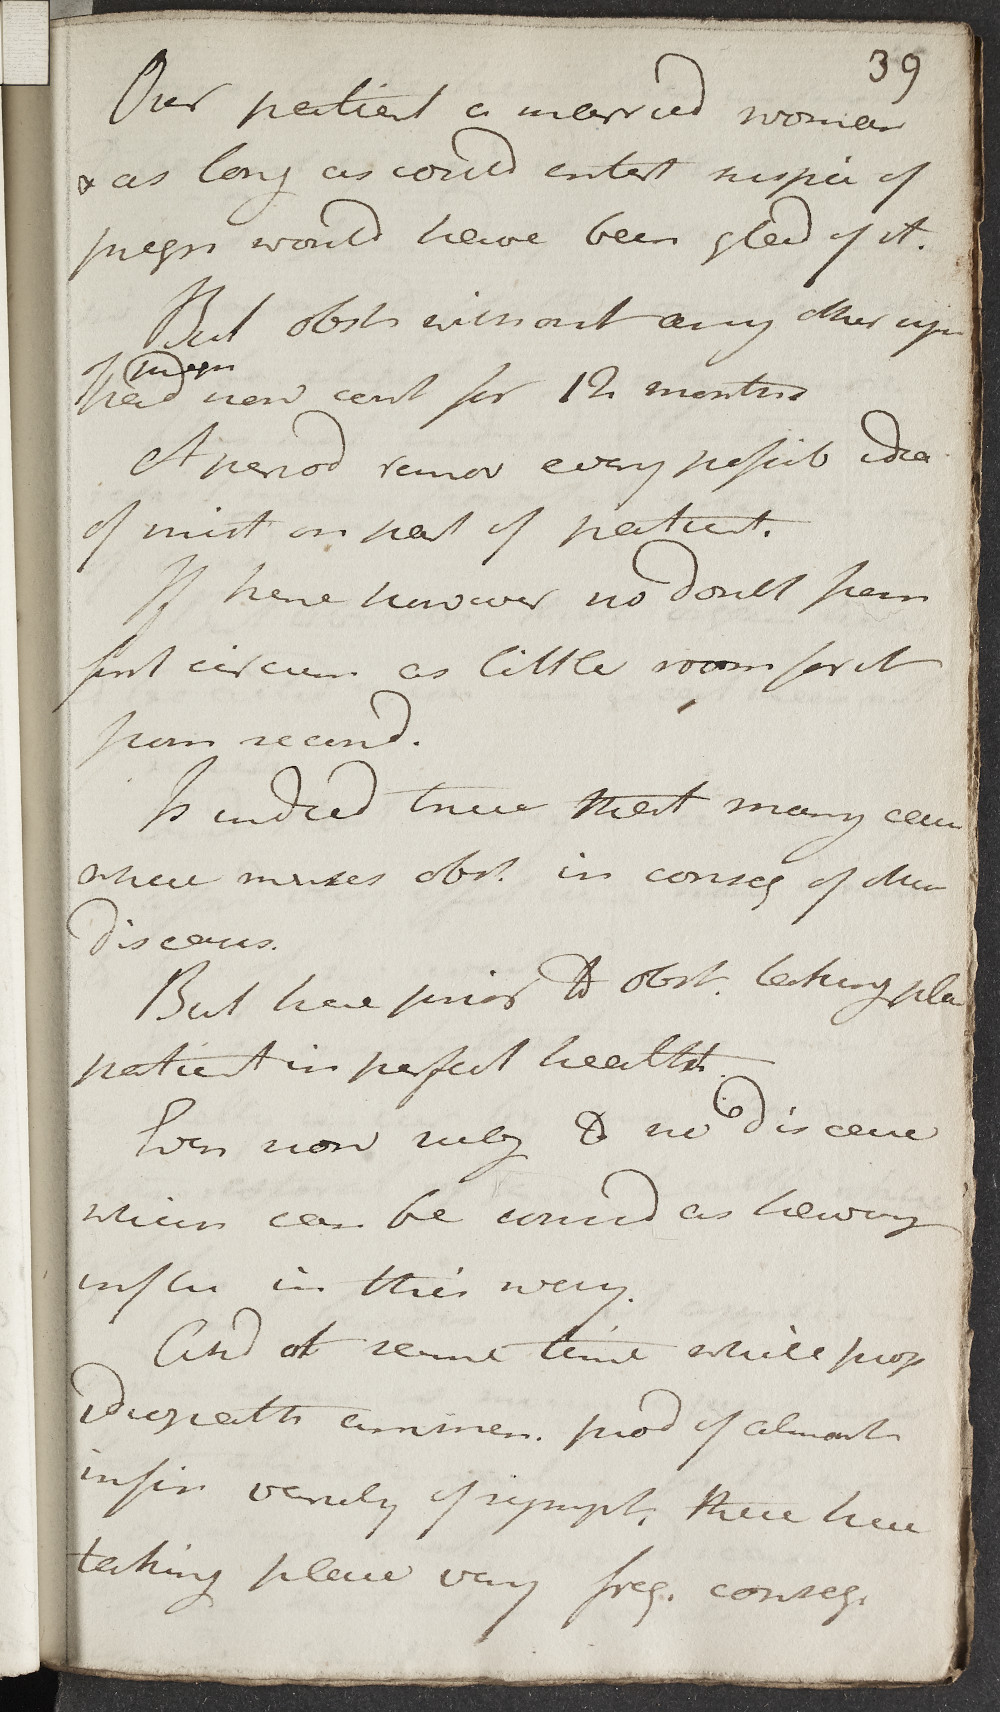 39
Our patient a married woman
& as long as could entert suspic of
pregn would have been glad of it.
But obstr without any other sign
of pregn
had now cont for 12 months
A period remov every possib idea
of mist on part of patient.
If here however no doubt from
first circum as little room for it
from second.
Is indeed true that many cases
where menses obst. in conseq of other
diseases.
But here prior to obst. taking place
patient in perfect health.
Even now subj to no disease
which can be consid as having
influ in this way.
And at same time while prop
idiopath ammen. prod of almost
infin variety of sympt. those here
taking place very freq. conseq.